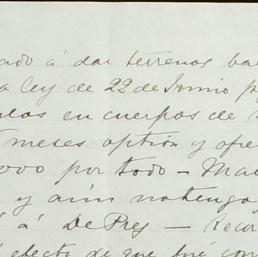 ado á dar terrenos ba
a ley de 22 de Junio p
las en cuerpos de
meses option y ofre
000 por todo — Ma
y aún no tengo
á De Prey — Recor
efecto de que fué con